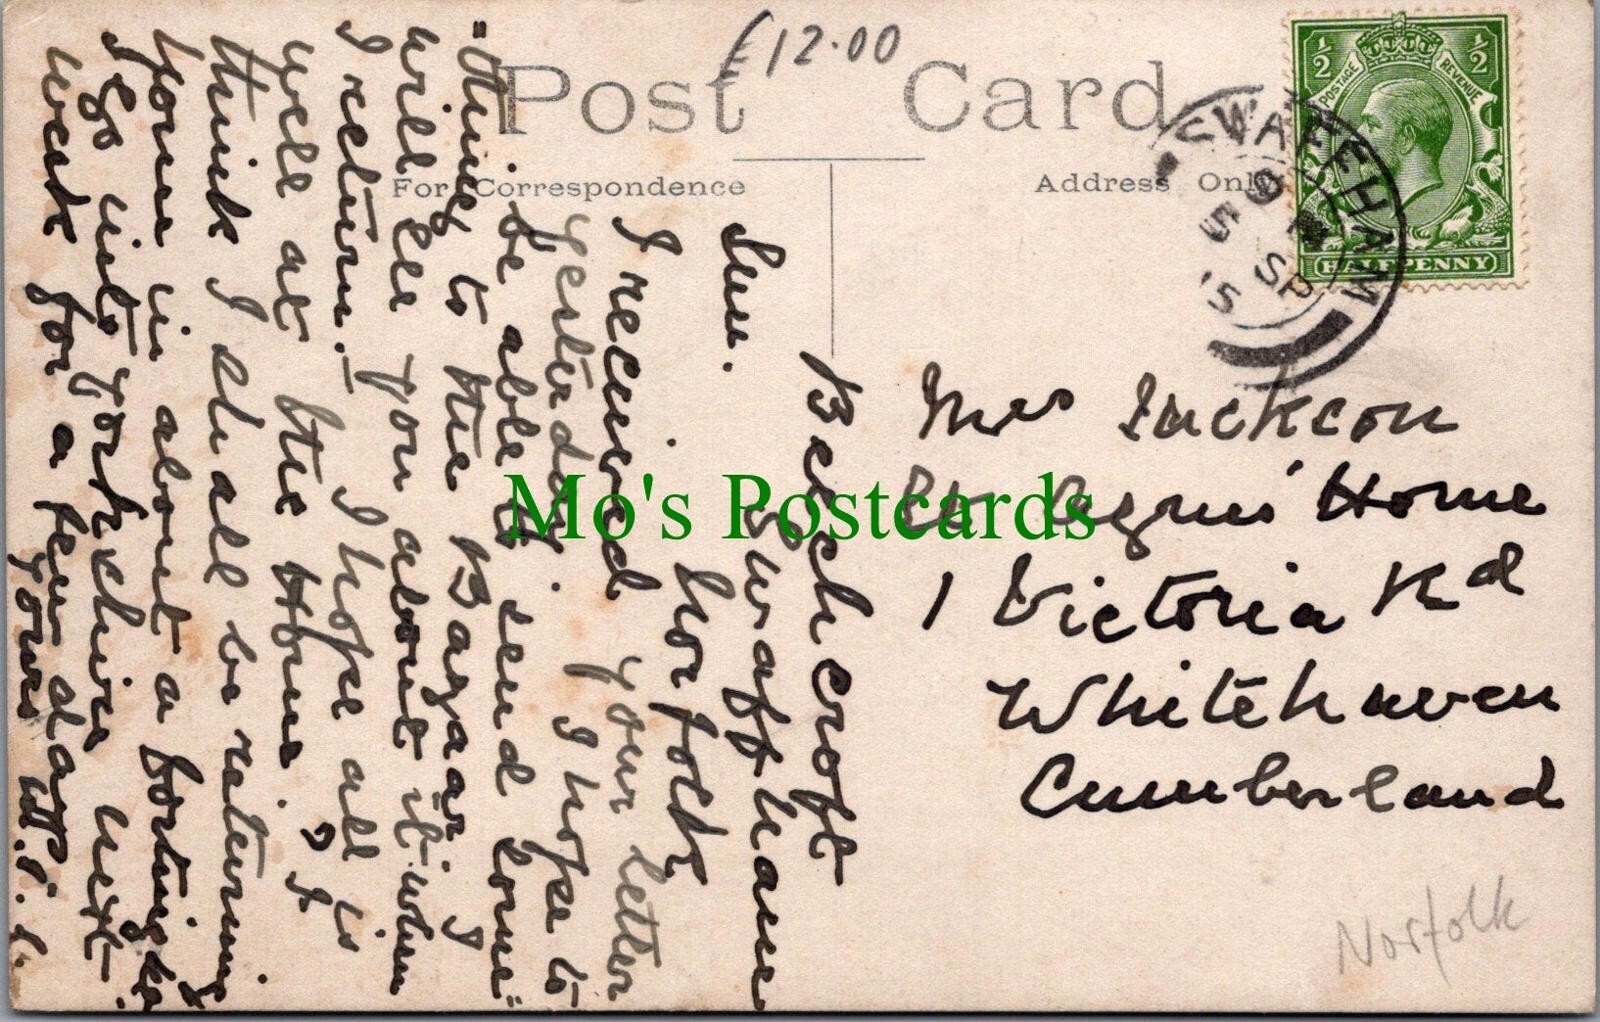 £12.00
Post Card
For Correspondence
Address Only
½ ½
POSTAGE REVENUE
HALFPENNY
SWAFFHAM
5 SP
15
Beech croft
Swaffham
Norfolk
Sun.
I received your letter
yesterday. I hope to
be able to send some
"things to the Bagaar", I
will see you about it when
I return.— I hope all is
well at the Home? I
think I shall be returning
home in about a fortnight
I go into Yorkshire next
week for a few days.
Yours
Mrs Jackson
St Agnes' Home
1 Victoria Rd
Whitehaven
Cumberland
Norfolk
Mo's Postcards